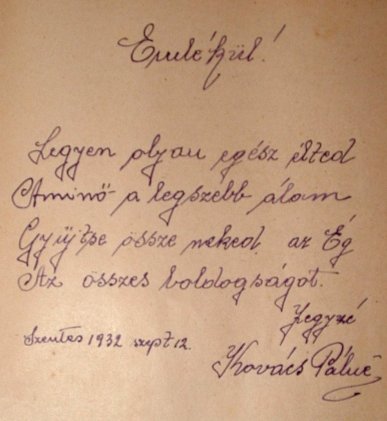 Emlékül!
Legyen olyan egész élted
Aminő a legszebb álom
Gyűjtse össze neked az Ég
Az összes boldogságot.
Jegyzé
Szentes 1932 szept 12.
Kovács Pálné